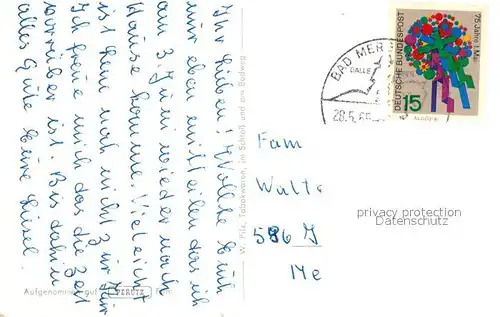 Ihr Lieben! Wollte Euch
nur eben mitteilen das ich
am 3. Juni wieder nach
Hause komme. Vielleicht
ist Rene noch nicht zur
Ich freue mich das die Zeit
vorrüber ist. Bis dahin
alles Gute Eure Liesel.
W. Pilz, Tabakwaren, im Schloß und am Badweg
Aufgenommen auf PERUTZ Film
BAD MER
GALLE
28.5.65
75 Jahre 1. Mai
DEUTSCHE BUNDESPOST
15
Fam
Walte
586 J
Me
privacy protection
Datenschutz